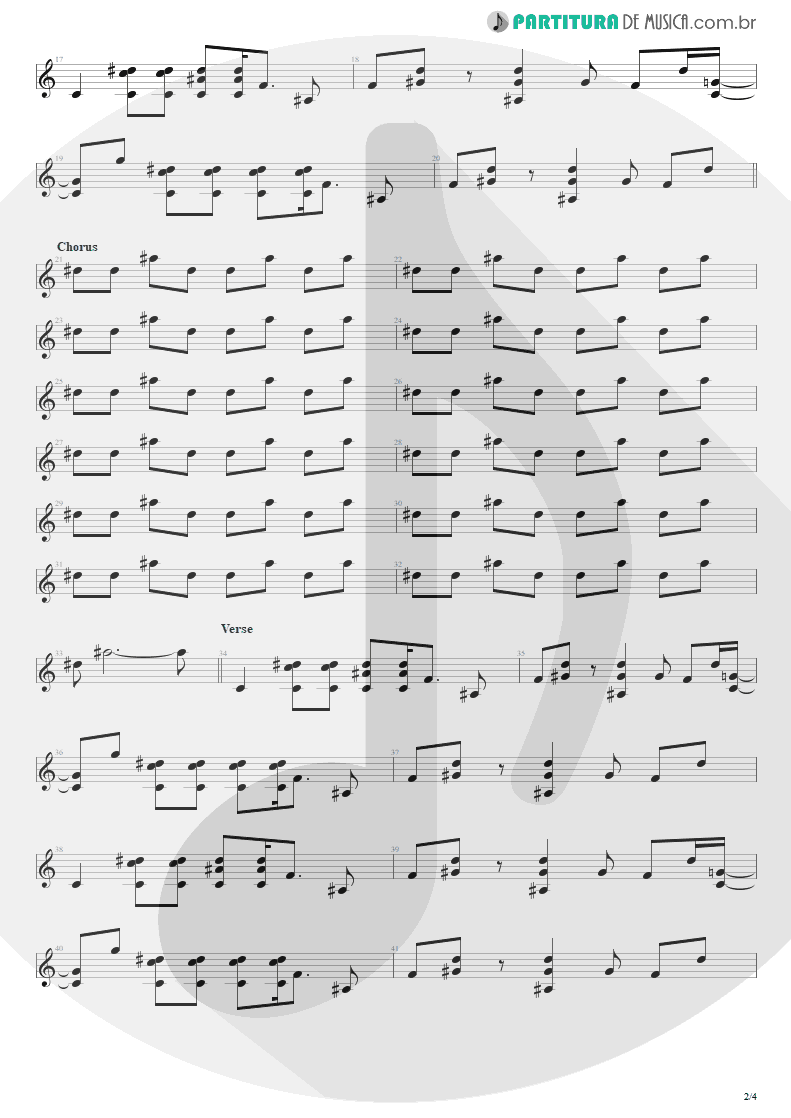 PARTITURA DE MUSICA.com.br
17 18
19 20
Chorus
21 22
23 24
25 26
27 28
29 30
31 32
Verse
33 34 35
36 37
38 39
40 41
2/4